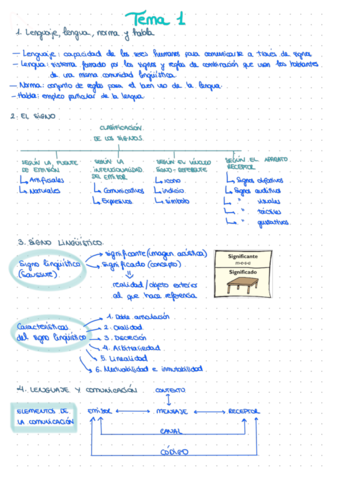 Tema 1
1. Lenguaje, lengua, norma y habla
- Lenguaje: capacidad de los seres humanos para comunicarse a través de signos
- Lengua: sistema formado por los signos y reglas de combinación que usan los hablantes
de una misma comunidad lingüística
- Norma: conjunto de reglas para el buen uso de la lengua
- Habla: empleo particular de la lengua
2. EL SIGNO
CLASIFICACIÓN
DE LOS SIGNOS
SEGÚN LA FUENTE
DE EMISIÓN
Artificiales
Naturales
SEGÚN LA
INTENCIONALIDAD
DEL EMISOR
Comunicativos
Expresivos
SEGÚN EL VÍNCULO
SIGNO-REFERENTE
Icono
Indicio
Símbolo
SEGÚN EL APARATO
RECEPTOR
Signos olfativos
Signos auditivos
" visuales
" táctiles
" gustativos
3. SIGNO LINGÜÍSTICO
Signo lingüístico
(Saussure)
significante (imagen acústica)
significado (concepto)
realidad / objeto exterior
al que hace referencia
Significante
mesa
Significado
Características
del signo lingüístico
1. Doble articulación
2. Oralidad
3. Discreción
4. Arbitrariedad
5. Linealidad
6. Mutabilidad e inmutabilidad
4. LENGUAJE Y COMUNICACIÓN
CONTEXTO
ELEMENTOS DE
LA COMUNICACIÓN
EMISOR
MENSAJE
RECEPTOR
CANAL
CÓDIGO